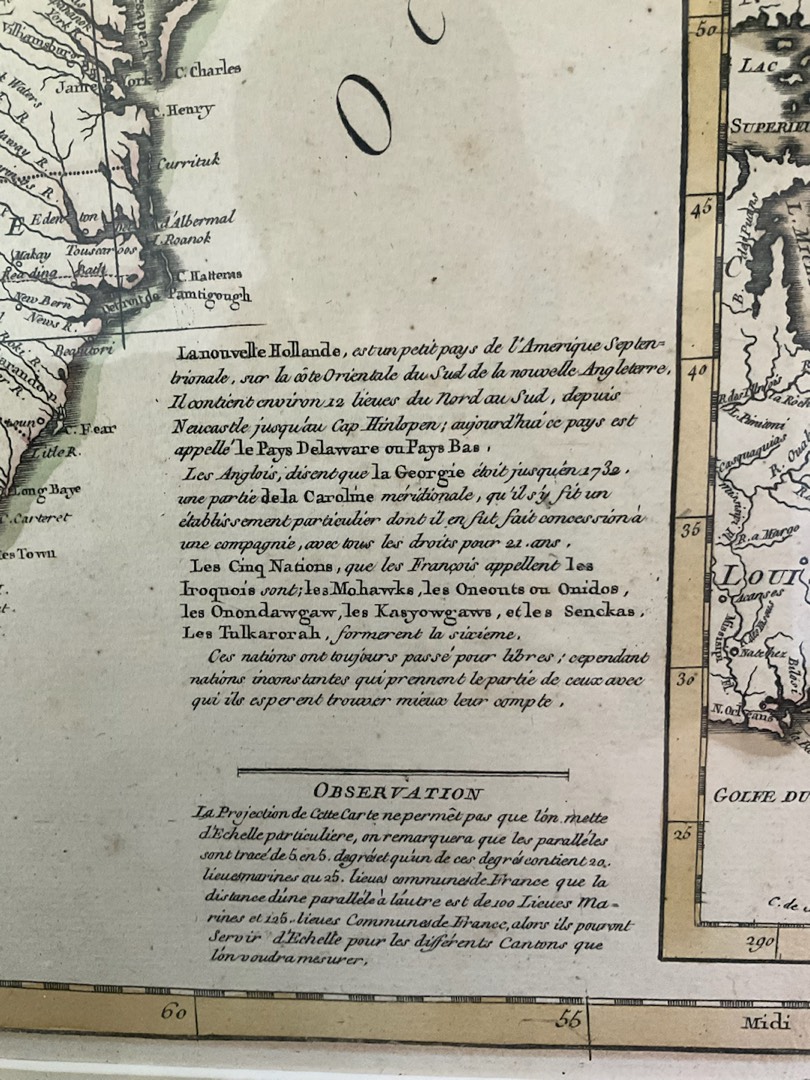 Williamsburg
James
York
C. Charles
C. Henry
Currituk
Edenton
d'Albermal
I. Roanok
Makay
Touscaroos
Reading
Bath
C. Hatteras
New Bern
Detroit de Pamtigough
News R.
Beaufort
C. Fear
Litle R.
Long Baye
C. Carteret
O C
La nouvelle Hollande, est un petit pays de l'Amerique Septen=
trionale, sur la côte Orientale du Sud de la nouvelle Angleterre,
Il contient environ 12 lieues du Nord au Sud, depuis
Neucastle jusqu'au Cap Hinlopen; aujourd'hui ce pays est
appellé le Pays Delaware ou Pays Bas,
Les Anglois, disent que la Georgie étoit jusqu'én 1732.
une partie de la Caroline méridionale, qu'il s'y fit un
établissement particulier dont il en fut fait concession à
une compagnie, avec tous les droits pour 21. ans.
Les Cinq Nations, que les François appellent les
Iroquois sont; les Mohawks, les Oneouts ou Onidos,
les Onondawgaw, les Kasyowgaws, et les Senckas.
Les Tulkarorah, formerent la sixieme.
Ces nations ont toujours passé pour libres; cependant
nations inconstantes qui prennent le partie de ceux avec
qui ils esperent trouver mieux leur compte.
OBSERVATION
La Projection de Cette Carte ne permêt pas que l'ón mette
d'Echelle particuliere, on remarquera que les paralléles
sont tracé de 5. en 5. degrés et qu'un de ces degré contient 20.
lieues marines ou 25. lieues communes de France que la
distance d'une paralléle à l'autre est de 100 Lieues Ma=
rines et 125. lieues Communes de France, alors ils pouront
Servir d'Echelle pour les différents Cantons que
l'ón voudra mesurer.
60
55
Midi
50
45
40
35
30
25
290
LAC
SUPERIEU
L. Mich
L. Pimioni
Casquaquias
R. a Margo
LOUI
Acanses
Natchez
Bilosi
N. Orleans
GOLFE DU
C. de